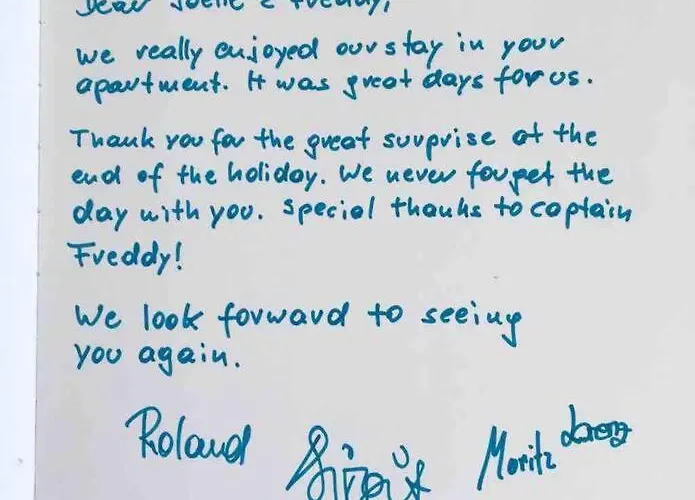 Dear Joelle & Freddy,
we really enjoyed our stay in your
apartment. It was great days for us.
Thank you for the great surprise at the
end of the holiday. We never forget the
day with you. Special thanks to captain
Freddy!
We look forward to seeing
you again.
Roland Moritz